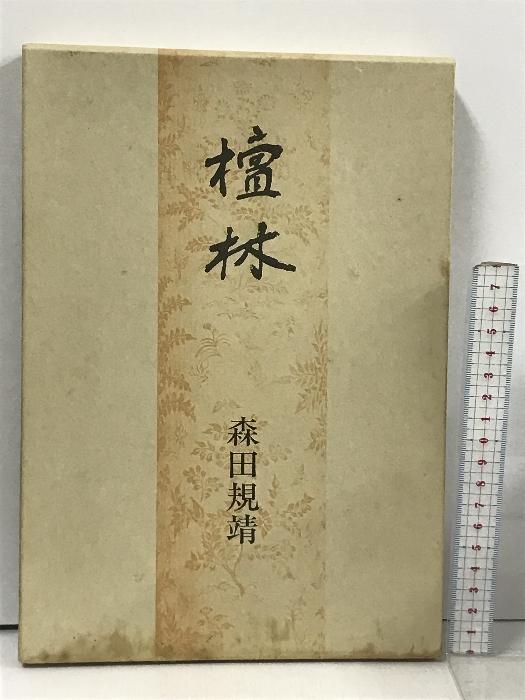 檀林
森田規靖
7
6
5
4
3
2
1
0
9
8
7
6
5
4
3
2
1